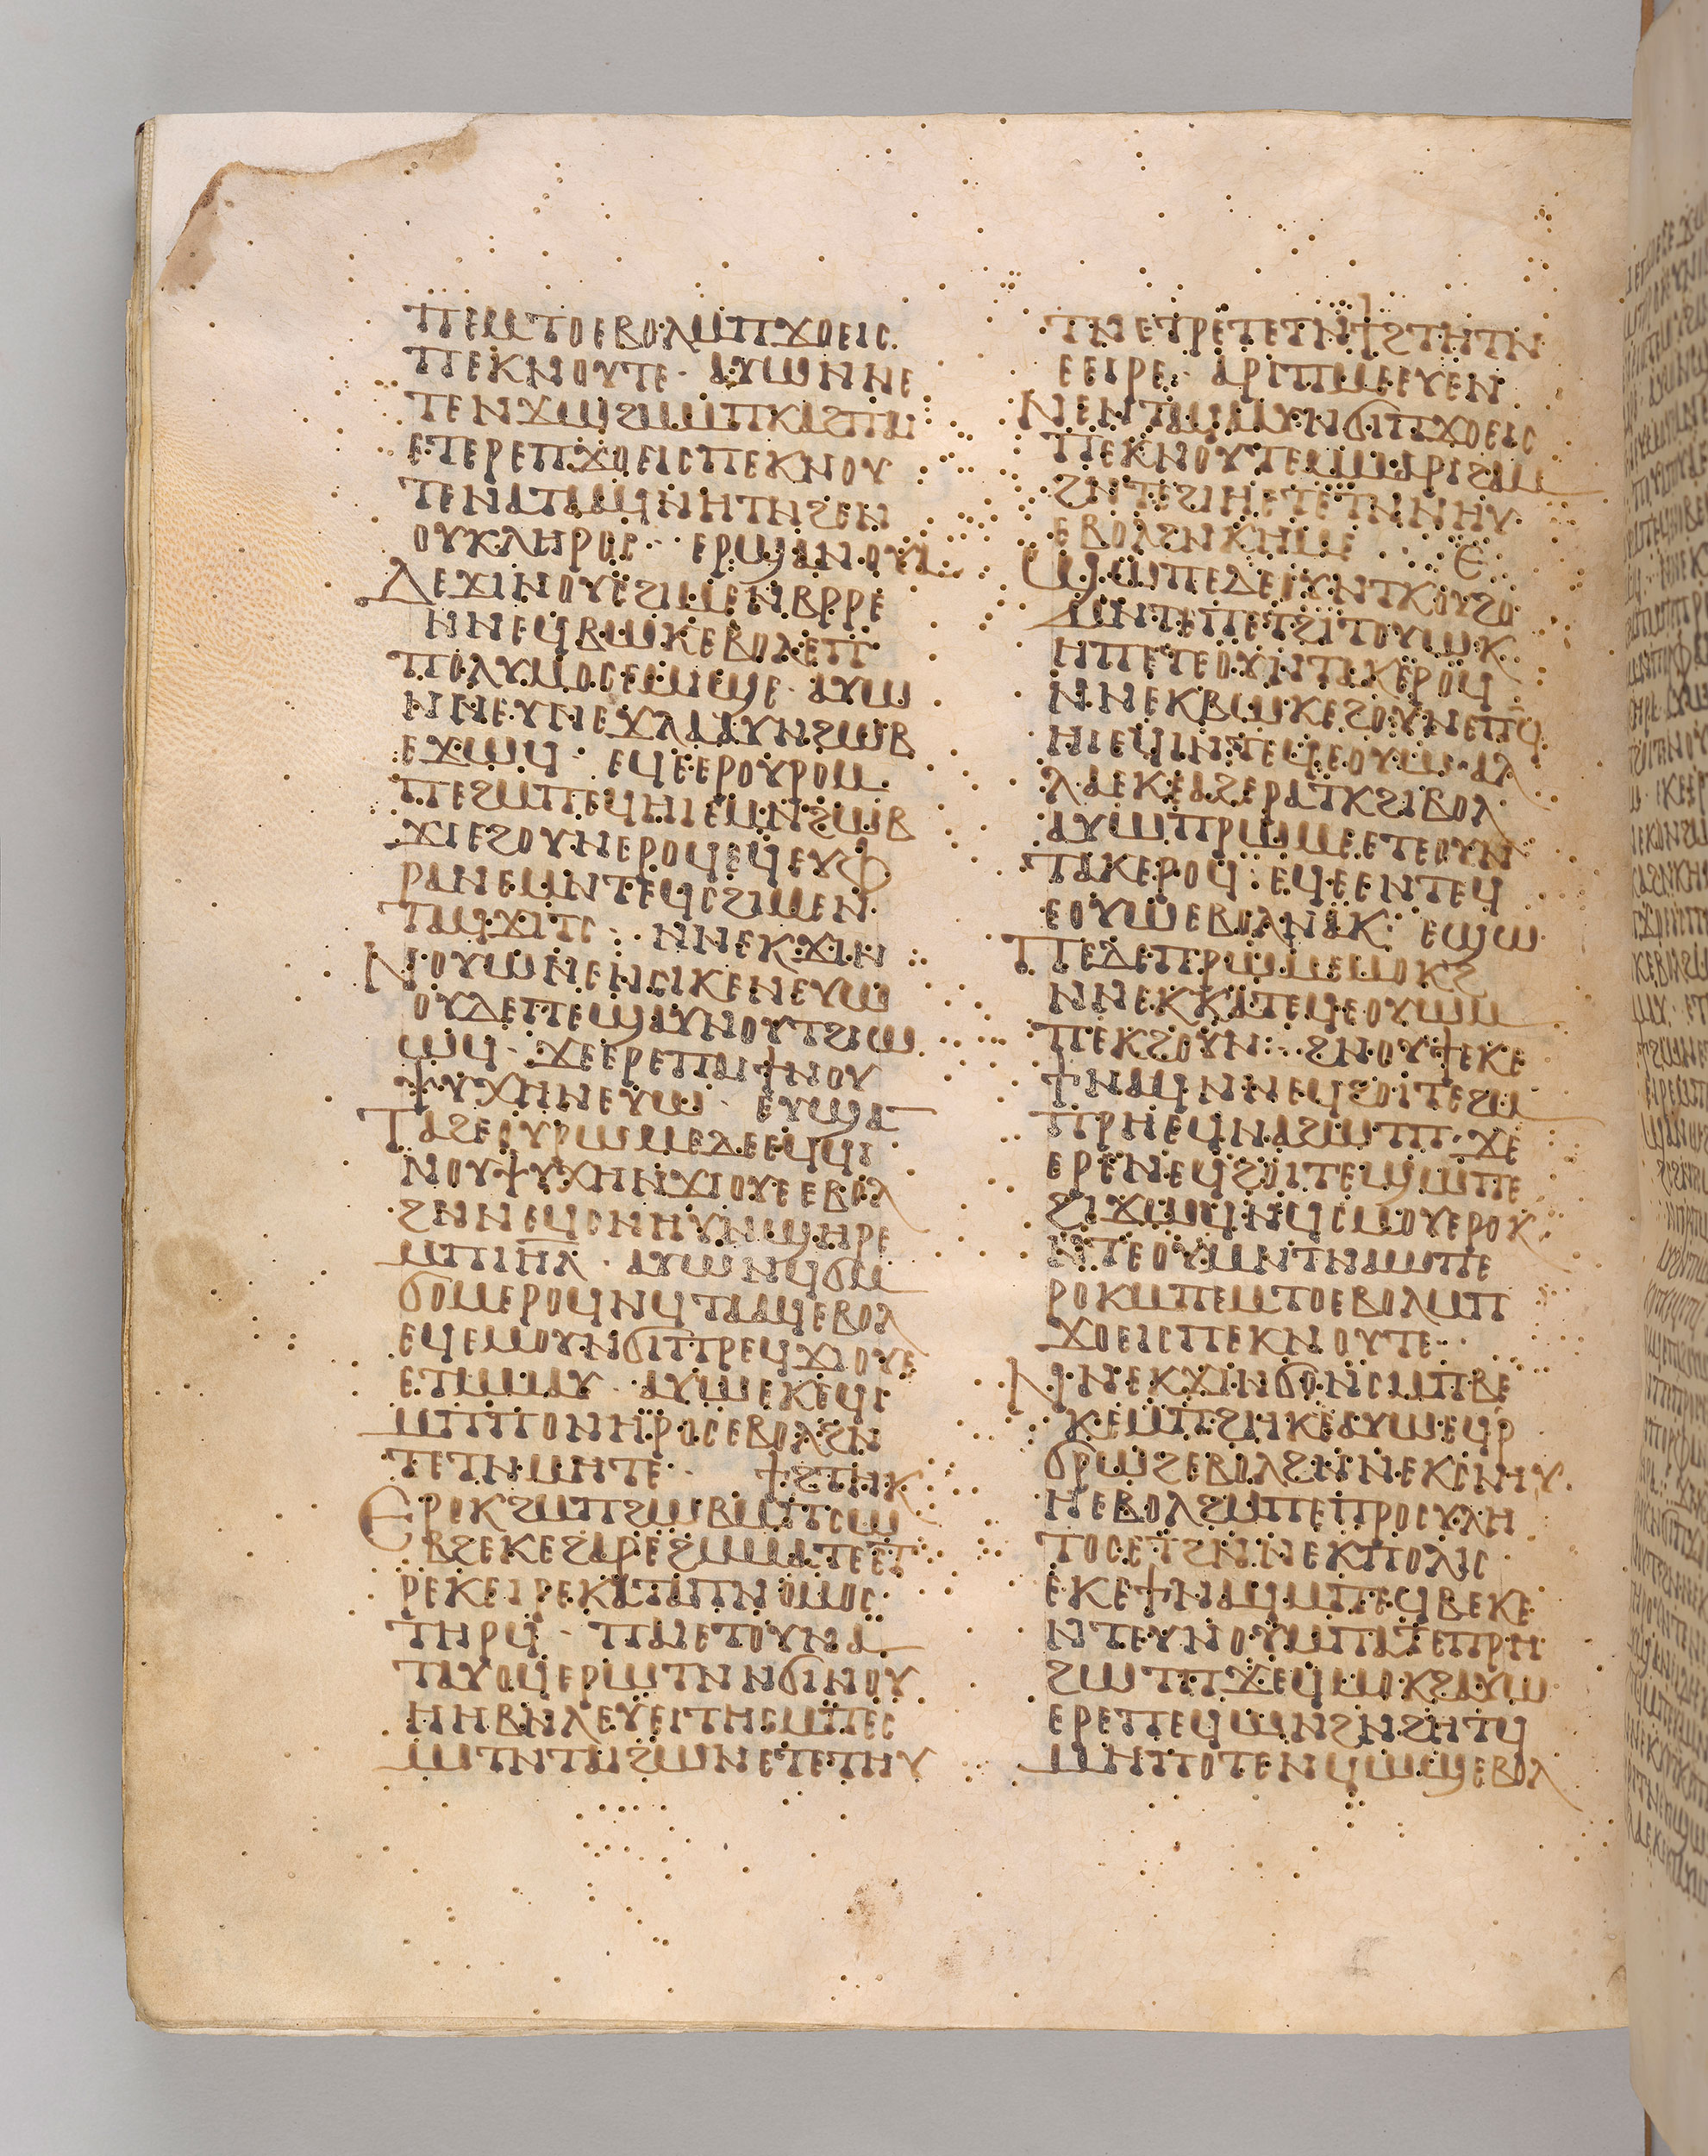 ⲡⲉⲙⲧⲟⲉⲃⲟⲗⲙⲡϫⲟⲉⲓⲥ·
ⲡⲉⲕⲛⲟⲩⲧⲉ· ⲁⲩⲱⲛⲛⲉ
ⲧⲉⲛϫⲱϩⲙⲙⲡⲕⲁϩⲡⲁⲓ
ⲉⲧⲉⲣⲉⲡϫⲟⲉⲓⲥⲡⲉⲕⲛⲟⲩ
ⲧⲉⲛⲁⲧⲁⲁϥⲛⲏⲧⲛϩⲉⲛ
ⲟⲩⲕⲗⲏⲣⲟⲥ·· ⲉⲣϣⲁⲛⲟⲩⲁ
ⲇⲉϫⲓⲛⲟⲩⲉϩⲓⲙⲉⲛⲃⲣⲣⲉ
ⲛⲛⲉϥⲃⲱⲕⲉⲃⲟⲗⲉⲡ
ⲡⲟⲗⲩⲙⲟⲥⲉⲙⲓϣⲉ· ⲁⲩⲱ
ⲛⲛⲉⲩⲛⲉϫⲗⲁⲁⲩⲛϩⲱⲃ
ⲉϫⲱϥ· ⲉϥⲉⲉⲣⲟⲩⲣⲟⲙ
ⲡⲉϩⲙⲡⲉϥⲏⲓⲉⲙⲛϩⲱⲃ
ϫⲓⲉϩⲟⲩⲛⲉⲣⲟϥⲉϥⲉⲩⲫ
ⲣⲁⲛⲉⲙⲛⲧⲉϥⲥϩⲓⲙⲉⲛ
ⲧⲁϥϫⲓⲧⲥ·· ⲛⲛⲉⲕϫⲓⲛ
ⲛⲟⲩⲱⲛⲉⲛⲥⲓⲕⲉⲛⲉⲩⲱ
ⲟⲩⲇⲉⲡⲉϣⲁⲩⲛⲟⲩⲧϩⲓⲱ
ⲱϥ· ϫⲉⲉⲣⲉⲡⲁⲓϯⲛⲟⲩ
ⲯⲩⲭⲏⲛⲉⲩⲱ· ⲉⲩϣⲁ
ⲧⲁϩⲉⲟⲩⲣⲱⲙⲉⲇⲉⲉϥϥⲓ
ⲛⲟⲩⲯⲩⲭⲏⲛϫⲓⲟⲩⲉⲉⲃⲟⲗ
ϩⲛⲛⲉϥⲥⲛⲏⲩⲛϣⲏⲣⲉ
ⲙⲡⲓⲏⲗ· ⲁⲩⲱⲛϥϭⲙ
ϭⲟⲙⲉⲣⲟϥⲛϥⲧⲁⲁϥⲉⲃⲟⲗ
ⲉϥⲉⲙⲟⲩⲛϭⲓⲡⲣⲉϥϫⲓⲟⲩⲉ
ⲉⲧⲙⲙⲁⲩ· ⲁⲩⲱⲉⲕⲉϥⲓ
ⲙⲡⲡⲟⲛⲏⲣⲟⲥⲉⲃⲟⲗϩⲛ
ⲧⲉⲧⲛⲙⲏⲧⲉ· ϯϩⲧⲏⲕ
ⲉⲣⲟⲕϩⲙⲡϩⲱⲃⲙⲡⲧⲥⲱ
ⲃϩⲉⲕⲉϩⲁⲣⲉϩⲙⲙⲁⲧⲉⲉⲧ
ⲣⲉⲕⲉⲓⲣⲉⲕⲁⲧⲁⲡⲛⲟⲙⲟⲥ
ⲧⲏⲣϥ· ⲡⲁⲓⲉⲧⲟⲩⲛⲁ
ⲧⲁⲩⲟϥⲉⲣⲱⲧⲛⲛϭⲓⲛⲟⲩ
ⲏⲏⲃⲛⲗⲉⲩⲉⲓⲧⲏⲥⲙⲡⲉⲥ
ⲙⲟⲧⲛⲧⲁⲓϩⲱⲛⲉⲧⲉⲧⲏⲩ
ⲧⲛⲉⲧⲣⲉⲧⲉⲧⲛϯϩⲧⲏⲧⲛ
ⲉⲉⲓⲣⲉ· ⲁⲣⲓⲡⲙⲉⲉⲩⲉⲛ
ⲛⲉⲛⲧⲁϥⲁⲁⲩⲛϭⲓⲡϫⲟⲉⲓⲥ
ⲡⲉⲕⲛⲟⲩⲧⲉⲙⲙⲁⲣⲓϩⲁⲙ
ϩⲛⲧⲉϩⲓⲏⲉⲧⲉⲧⲛⲛⲏⲩ
ⲉⲃⲟⲗϩⲛⲕⲏⲙⲉ· ⲉ
ϣⲱⲡⲉⲇⲉⲟⲩⲛⲧⲕⲟⲩϩⲟ
ⲙⲛⲧⲉⲡⲉⲧϩⲓⲧⲟⲩⲱⲕ
ⲏⲡⲉⲧⲉⲟⲩⲛⲧⲁⲕⲉⲣⲟϥ
ⲛⲛⲉⲕⲃⲱⲕⲉϩⲟⲩⲛⲉⲡϥ
ⲏⲓⲉϥⲓⲛⲧⲉϥⲉⲟⲩⲱ·ⲁⲗ
ⲗⲁⲉⲕⲉⲁϩⲉⲣⲁⲧⲕϩⲓⲃⲟⲗ
ⲁⲩⲱⲡⲣⲱⲙⲉⲉⲧⲉⲟⲩⲛ
ⲧⲁⲕⲉⲣⲟϥ·ⲉϥⲉⲉⲛⲧⲉϥ
ⲉⲟⲩⲱⲉⲃⲟⲗⲛⲁⲕ· ⲉϣⲱ
ⲡⲉⲇⲉⲡⲣⲱⲙⲉⲙⲟⲕϩ
ⲛⲛⲉⲕⲕⲁⲧⲉϥⲉⲟⲩⲱⲙ
ⲡⲉⲕϩⲟⲩⲛ·· ϩⲛⲟⲩϯⲉⲕⲉ
ϯⲛⲁϥⲛⲛⲉϥϩⲟⲓⲧⲉϩⲙ
ⲡⲣⲏⲉϥⲛⲁϩⲱⲧⲡ·ϫⲉ
ⲉⲣⲉⲛⲉϥϩⲟⲓⲧⲉϣⲱⲡⲉ
ϩⲓϫⲱϥⲛϥⲥⲙⲟⲩⲉⲣⲟⲕ
ⲛⲧⲉⲟⲩⲙⲛⲧⲛⲁϣⲱⲡⲉ
ⲣⲟⲕⲙⲡⲉⲙⲧⲟⲉⲃⲟⲗⲙⲡ
ϫⲟⲉⲓⲥⲡⲉⲕⲛⲟⲩⲧⲉ··
ⲛⲛⲉⲕϫⲓⲛϭⲟⲛⲥⲙⲡⲃⲉ
ⲕⲉⲙⲡϩⲏⲕⲉⲁⲩⲱⲉϥⲣ
ϭⲣⲱϩⲉⲃⲟⲗϩⲛⲛⲉⲕⲥⲛⲏⲩ·
ⲏⲉⲃⲟⲗϩⲙⲡⲉⲡⲣⲟⲥⲩⲗⲏ
ⲧⲟⲥⲉⲧϩⲛⲛⲉⲕⲡⲟⲗⲓⲥ
ⲉⲕⲉϯⲛⲁϥⲙⲡⲉϥⲃⲉⲕⲉ
ⲛⲧⲉⲩⲛⲟⲩⲙⲡⲁⲧⲉⲡⲣⲏ
ϩⲱⲧⲡϫⲉϥⲙⲟⲕϩⲁⲩⲱ
ⲉⲣⲉⲡⲉϥⲱⲛϩⲛϩⲏⲧϥ
ⲙⲏⲡⲟⲧⲉⲛϥⲱϣⲉⲃⲟⲗ